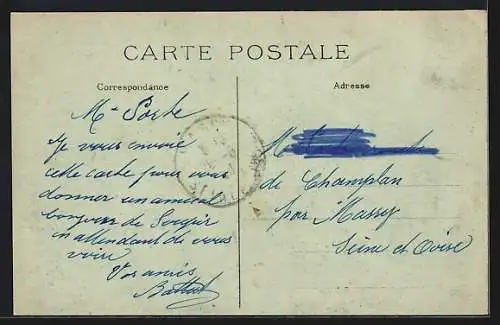 CARTE POSTALE
Correspondance
Adresse
Mr
Je vous envoie
cette carte pour vous
donner un amical
bonjour de
en attendant de vous
voir
Vos amis
M
de Champlan
par Massy
Seine et Oise